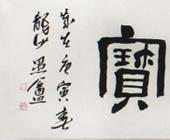 寶
歲在庚寅春
龍山愚盦